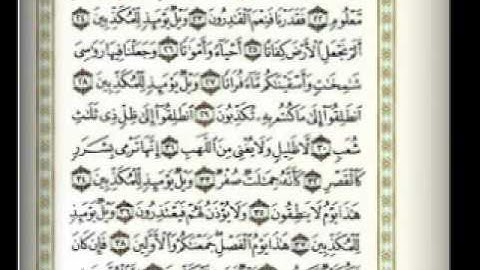 مَّعْلُومٍ ۝٢٢ فَقَدَرْنَا فَنِعْمَ ٱلْقَٰدِرُونَ ۝٢٣ وَيْلٌ يَوْمَئِذٍ لِّلْمُكَذِّبِينَ ۝٢٤
أَلَمْ نَجْعَلِ ٱلْأَرْضَ كِفَاتًا ۝٢٥ أَحْيَآءً وَأَمْوَٰتًا ۝٢٦ وَجَعَلْنَا فِيهَا رَوَٰسِىَ
شَٰمِخَٰتٍ وَأَسْقَيْنَٰكُم مَّآءً فُرَاتًا ۝٢٧ وَيْلٌ يَوْمَئِذٍ لِّلْمُكَذِّبِينَ ۝٢٨
ٱنطَلِقُوٓا۟ إِلَىٰ مَا كُنتُم بِهِۦ تُكَذِّبُونَ ۝٢٩ ٱنطَلِقُوٓا۟ إِلَىٰ ظِلٍّ ذِى ثَلَٰثِ
شُعَبٍ ۝٣٠ لَّا ظَلِيلٍ وَلَا يُغْنِى مِنَ ٱللَّهَبِ ۝٣١ إِنَّهَا تَرْمِى بِشَرَرٍ
كَٱلْقَصْرِ ۝٣٢ كَأَنَّهُۥ جِمَٰلَتٌ صُفْرٌ ۝٣٣ وَيْلٌ يَوْمَئِذٍ لِّلْمُكَذِّبِينَ ۝٣٤
هَٰذَا يَوْمُ لَا يَنطِقُونَ ۝٣٥ وَلَا يُؤْذَنُ لَهُمْ فَيَعْتَذِرُونَ ۝٣٦ وَيْلٌ يَوْمَئِذٍ
لِّلْمُكَذِّبِينَ ۝٣٧ هَٰذَا يَوْمُ ٱلْفَصْلِ جَمَعْنَٰكُمْ وَٱلْأَوَّلِينَ ۝٣٨ فَإِن كَانَ